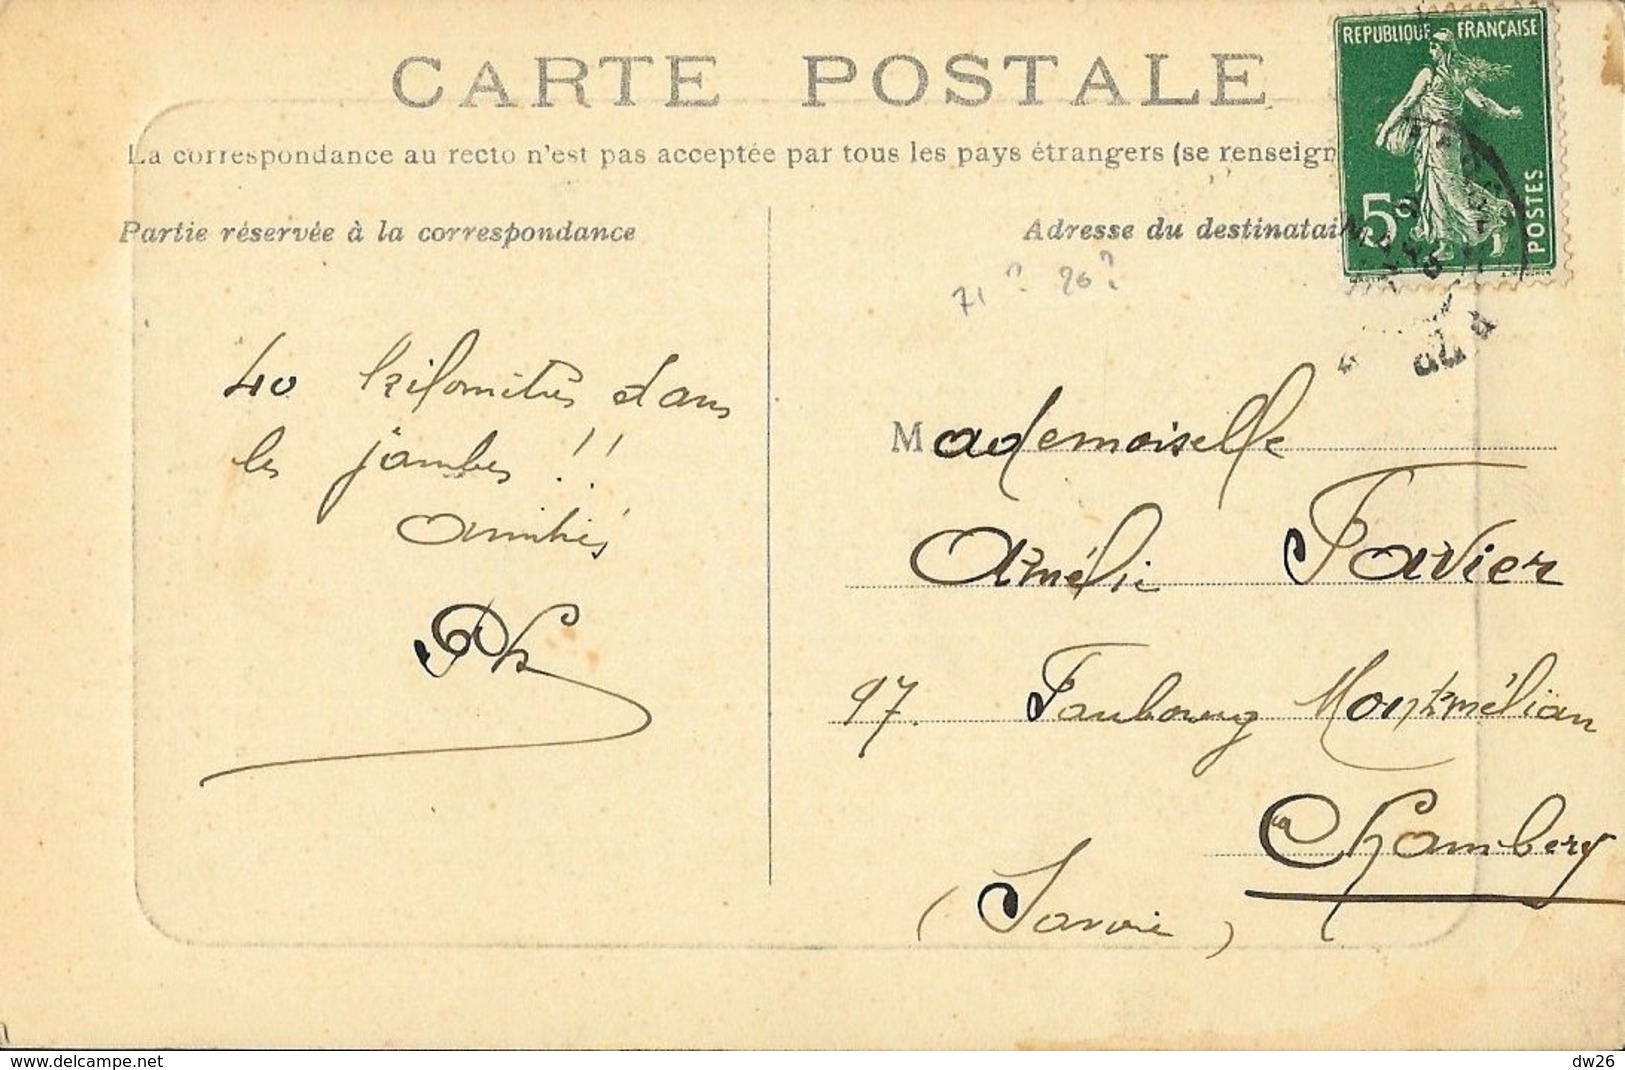 CARTE POSTALE
REPUBLIQUE FRANÇAISE
5c
POSTES
La correspondance au recto n'est pas acceptée par tous les pays étrangers (se renseign
Partie réservée à la correspondance
Adresse du destinatai
71? 20?
40 kilomètres dans
les jambes !!
amitiés
Mademoiselle
Amélie Favier
97. Faubourg Montmélian
Chambery
(Savoie)
www.delcampe.net
dw26